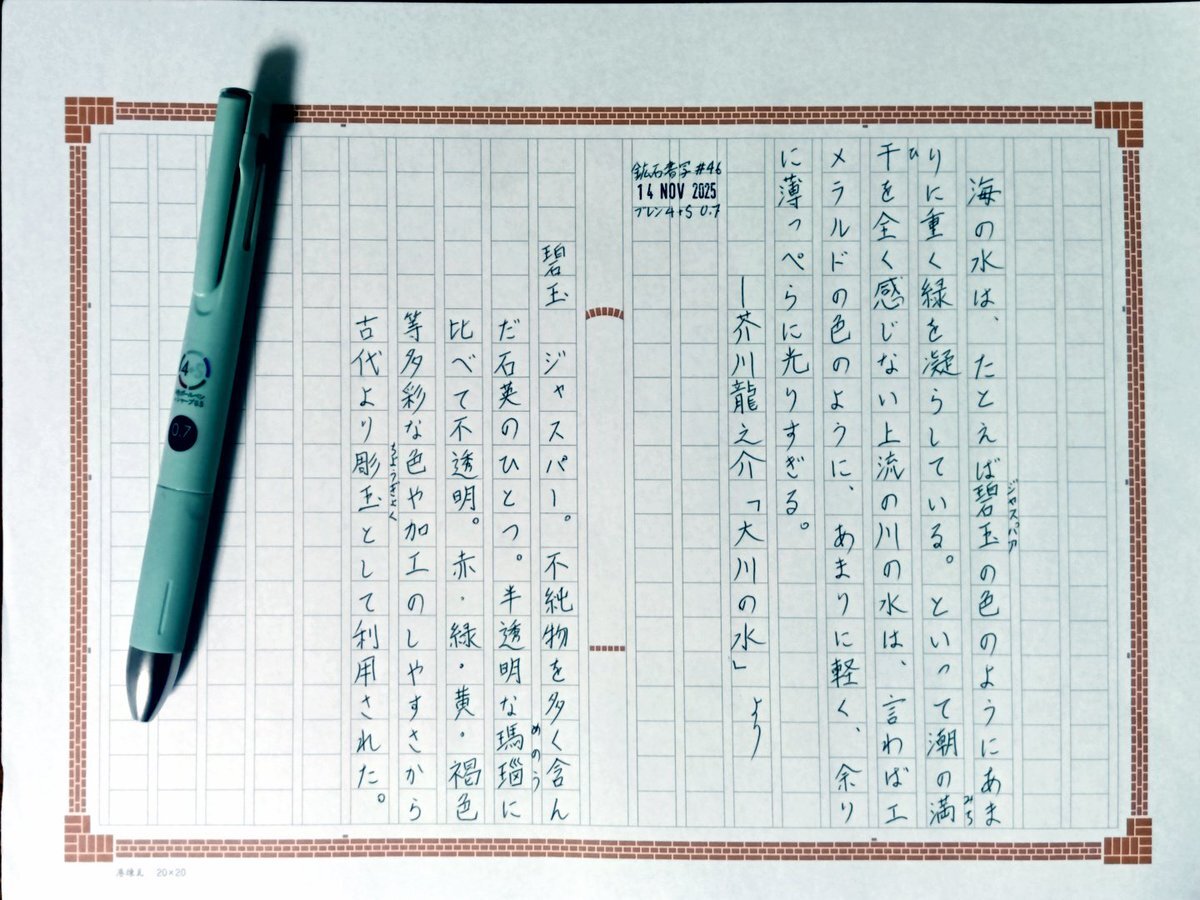 海の水は、たとえば碧玉の色のようにあま
ジャスパア
りに重く緑を凝らしている。といって潮の満
みち
干を全く感じない上流の川の水は、言わばエ
ひ
メラルドの色のように、あまりに軽く、余り
に薄っぺらに光りすぎる。
―芥川龍之介「大川の水」より
鉱石書写 #46
14 NOV 2025
ブレン4+S 0.7
碧玉 ジャスパー。不純物を多く含ん
だ石英のひとつ。半透明な瑪瑙に
めのう
比べて不透明。赤・緑・黄・褐色
等多彩な色や加工のしやすさから
古代より彫玉として利用された。
ちょうぎょく
4+S
0.7
20×20